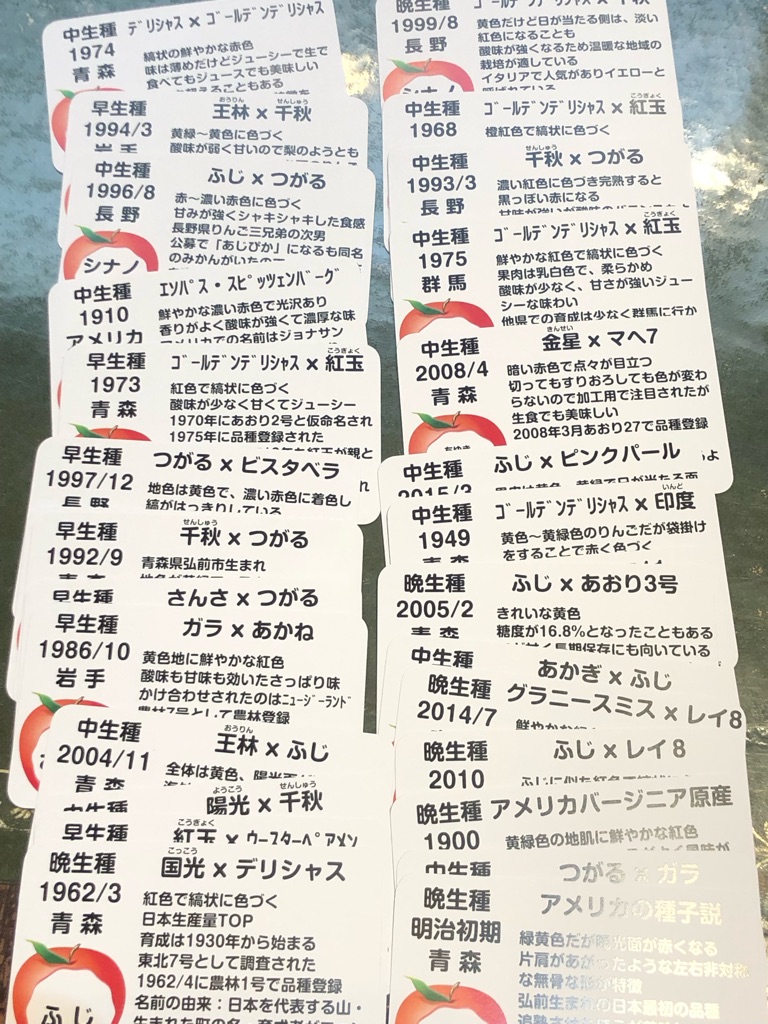 中生種
1974
青森
デリシャス x ゴールデンデリシャス
縞状の鮮やかな赤色
味は薄めだけどジューシーで生で
食べてもジュースでも美味しい
早生種
1994/3
岩手
おうりん せんしゅう
王林 x 千秋
黄緑~黄色に色づく
酸味が弱く甘いので梨のようとも
中生種
1996/8
長野
シナノ
ふじ x つがる
赤~濃い赤色に色づく
甘みが強くシャキシャキした食感
長野県りんご三兄弟の次男
公募で「あじぴか」になるも同名
のみかんがいたので
中生種
1910
アメリカ
エソパス・スピッツェンバーグ
鮮やかな濃い赤色で光沢あり
香りがよく酸味が強くて濃厚な味
アメリカでの名前はジョナサン
早生種
1973
青森
こうぎょく
ゴールデンデリシャス x 紅玉
紅色で縞状に色づく
酸味が少なく甘くてジューシー
1970年にあおり2号と仮命名され
1975年に品種登録された
早生種
1997/12
長野
つがる x ビスタベラ
地色は黄色で、濃い赤色に着色し
縞がはっきりしている
早生種
1992/9
青森
せんしゅう
千秋 x つがる
青森県弘前市生まれ
早生種
さんさ x つがる
早生種
1986/10
岩手
ガラ x あかね
黄色地に鮮やかな紅色
酸味も甘味も効いたさっぱり味
かけ合わせされたのはニュージーランド
農林7号として農林登録
中生種
2004/11
青森
おうりん
王林 x ふじ
全体は黄色、陽光面が
中生種
ようこう せんしゅう
陽光 x 千秋
早生種
こうぎょく
紅玉 x ウースターペアメン
晩生種
1962/3
青森
ふじ
こっこう
国光 x デリシャス
紅色で縞状に色づく
日本生産量TOP
育成は1930年から始まる
東北7号として調査された
1962/4に農林1号で品種登録
名前の由来:日本を代表する山・
晩生種
1999/8
長野
シナノ
ゴールデンデリシャス x 千秋
黄色だけど日が当たる側は、淡い
紅色になることも
酸味が強くなるため温暖な地域の
栽培が適している
イタリアで人気がありイエローと
呼ばれている
中生種
1968
こうぎょく
ゴールデンデリシャス x 紅玉
橙紅色で縞状に色づく
中生種
1993/3
長野
せんしゅう
千秋 x つがる
濃い紅色に色づき完熟すると
黒っぽい赤になる
中生種
1975
群馬
こうぎょく
ゴールデンデリシャス x 紅玉
鮮やかな紅色で縞状に色づく
果肉は乳白色で、柔らかめ
酸味が少なく、甘さが強いジュー
シーな味わい
他県での育成は少なく群馬に行か
中生種
2008/4
青森
きんせい
金星 x マヘ7
暗い赤色で点々が目立つ
切ってもすりおろしても色が変わ
らないので加工用で注目されたが
生食でも美味しい
2008年3月あおり27で品種登録
中生種
2015/3
ふじ x ピンクパール
中生種
1949
青森
いんど
ゴールデンデリシャス x 印度
黄色~黄緑色のりんごだが袋掛け
をすることで赤く色づく
晩生種
2005/2
青森
ふじ x あおり3号
きれいな黄色
糖度が16.8%となったこともある
長期保存にも向いている
中生種
あかぎ x ふじ
晩生種
2014/7
グラニースミス x レイ8
晩生種
2010
ふじ x レイ8
ふじに似た紅色で
晩生種
1900
アメリカバージニア原産
黄緑色の地肌に鮮やかな紅色
中生種
つがる x ガラ
晩生種
明治初期
青森
アメリカの種子説
緑黄色だが陽光面が赤くなる
片肩があがったような左右非対称
な無骨な形が特徴
弘前生まれの日本最初の品種